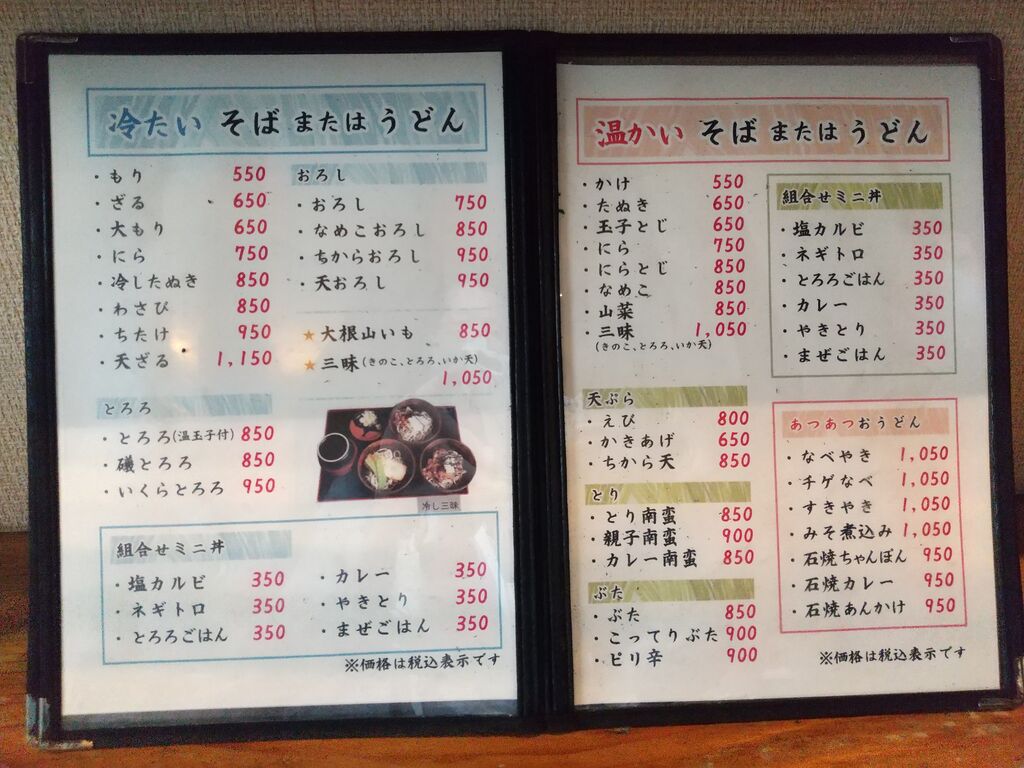 冷たい そば または うどん
・もり 550
・ざる 650
・大もり 650
・にら 750
・冷したぬき 850
・わさび 850
・ちたけ 950
・天ざる 1,150
とろろ
・とろろ(温玉子付) 850
・磯とろろ 850
・いくらとろろ 950
おろし
・おろし 750
・なめこおろし 850
・ちからおろし 950
・天おろし 950
★大根山いも 850
★三味(きのこ、とろろ、いか天)
1,050
冷し三味
組合せミニ丼
・塩カルビ 350
・ネギトロ 350
・とろろごはん 350
・カレー 350
・やきとり 350
・まぜごはん 350
※価格は税込表示です
温かい そば または うどん
・かけ 550
・たぬき 650
・玉子とじ 650
・にら 750
・にらとじ 850
・なめこ 850
・山菜 850
・三味 1,050
(きのこ、とろろ、いか天)
天ぷら
・えび 800
・かきあげ 650
・ちから天 850
とり
・とり南蛮 850
・親子南蛮 900
・カレー南蛮 850
ぶた
・ぶた 850
・こってりぶた 900
・ピリ辛 900
組合せミニ丼
・塩カルビ 350
・ネギトロ 350
・とろろごはん 350
・カレー 350
・やきとり 350
・まぜごはん 350
あつあつおうどん
・なべやき 1,050
・チゲなべ 1,050
・すきやき 1,050
・みそ煮込み 1,050
・石焼ちゃんぽん 950
・石焼カレー 950
・石焼あんかけ 950
※価格は税込表示です